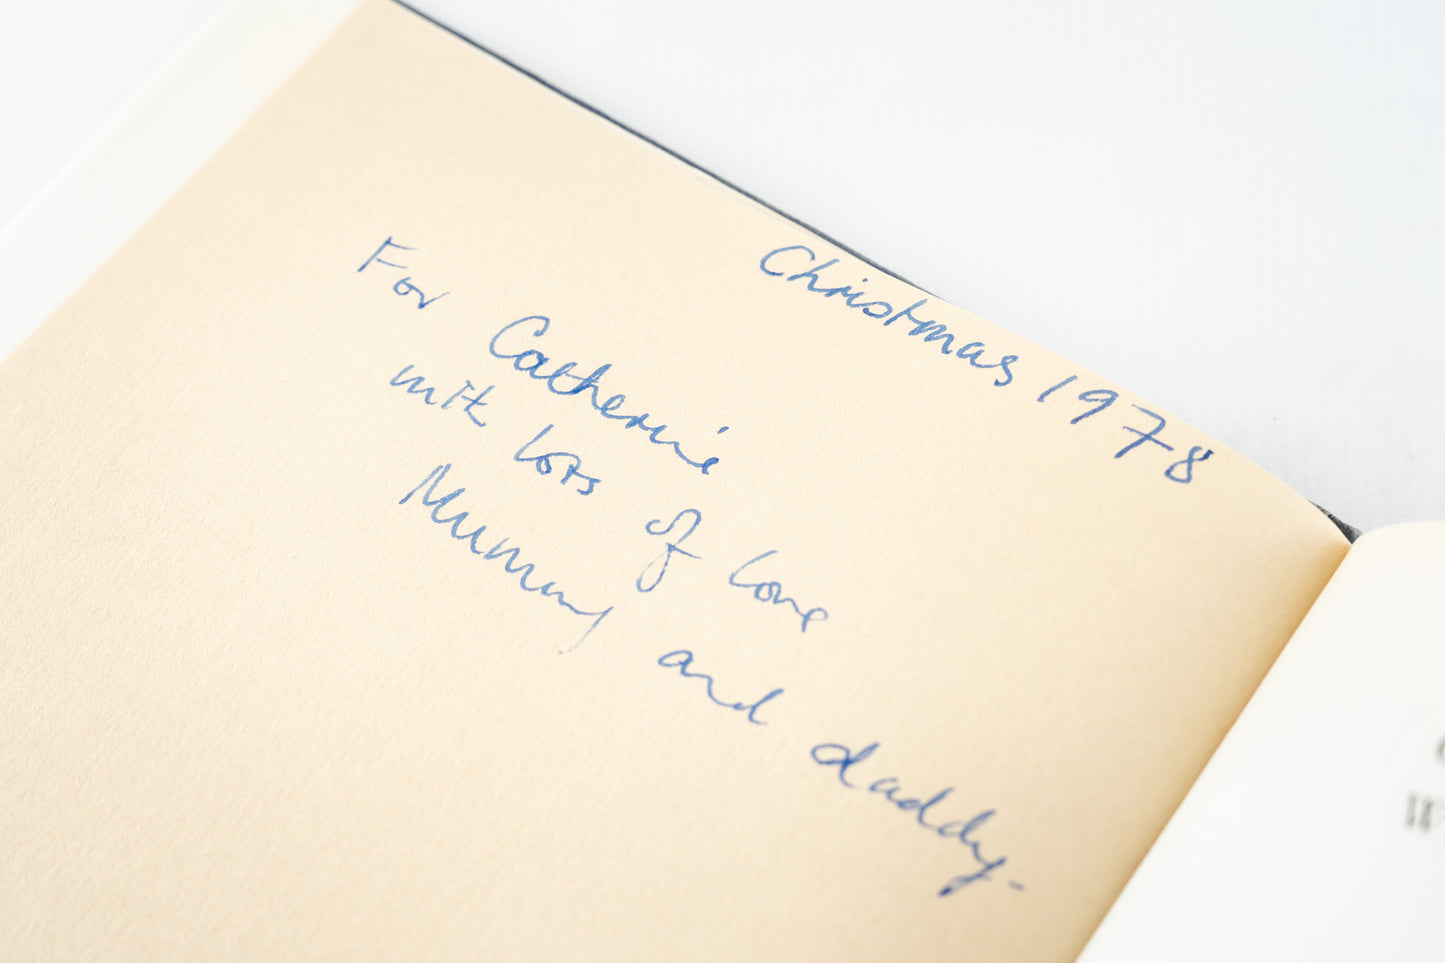 Christmas 1978
For Catherine
with lots of love
Mummy and daddy-